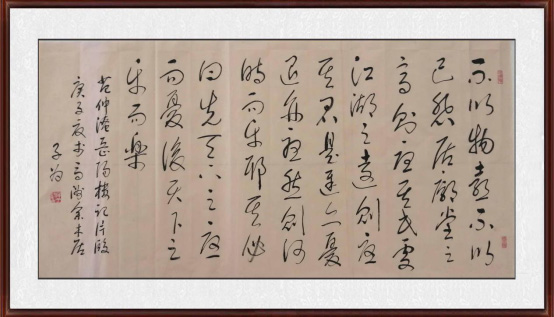 不以物喜不以
己悲居廟堂之
高則憂其民處
江湖之遠則憂
其君是進亦憂
退亦憂然則何
時而樂耶其必
曰先天下之憂
而憂後天下之
樂而樂
范仲淹岳陽樓記片段
庚子夏書木居
子